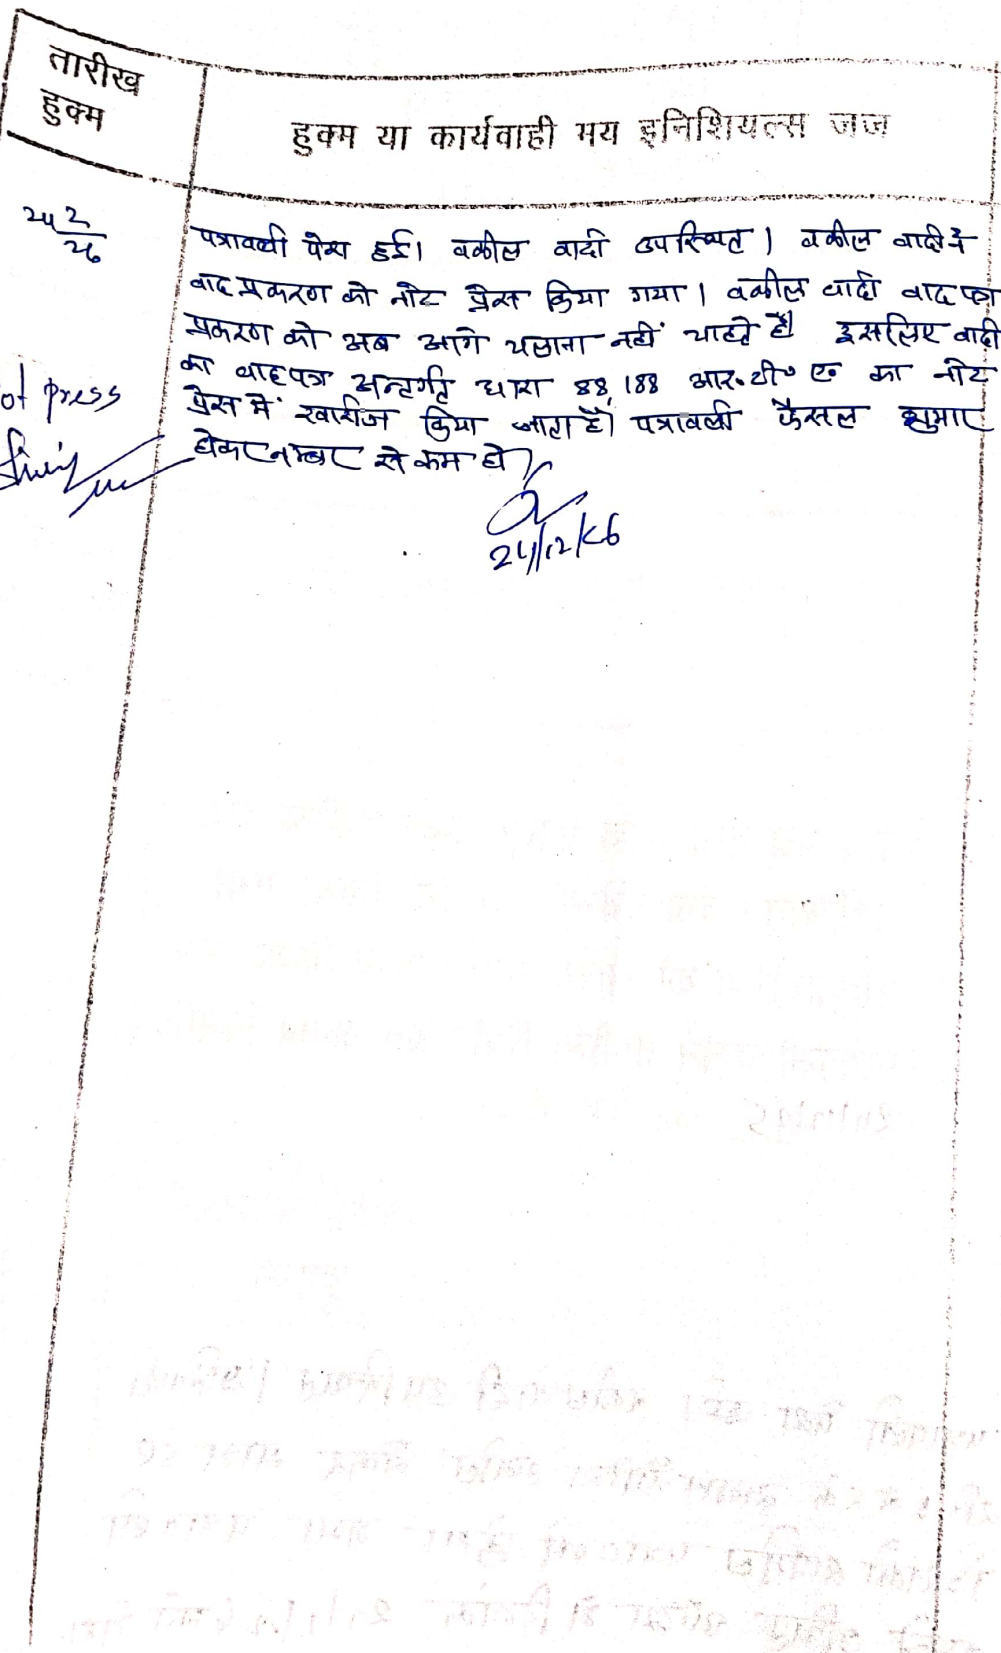 तारीख
हुक्म
हुक्म या कार्यवाही मय इनिशियल्स जज
पत्रावली पेश हुई। वकील वादी उपस्थित। वकील वादी ने
वाद प्रकरण को नोट प्रेस किया गया। वकील वादी वाद पत्र
प्रकरण को अब आगे चलाना नहीं चाहते है। इसलिए वादी
का वादपत्र अन्तर्गत धारा 88,188 आर॰टी॰ ए॰ का नोट
प्रेस में खारीज किया जाता है। पत्रावली फैसल शुमार
होकर नम्बर से कम हो
ot press